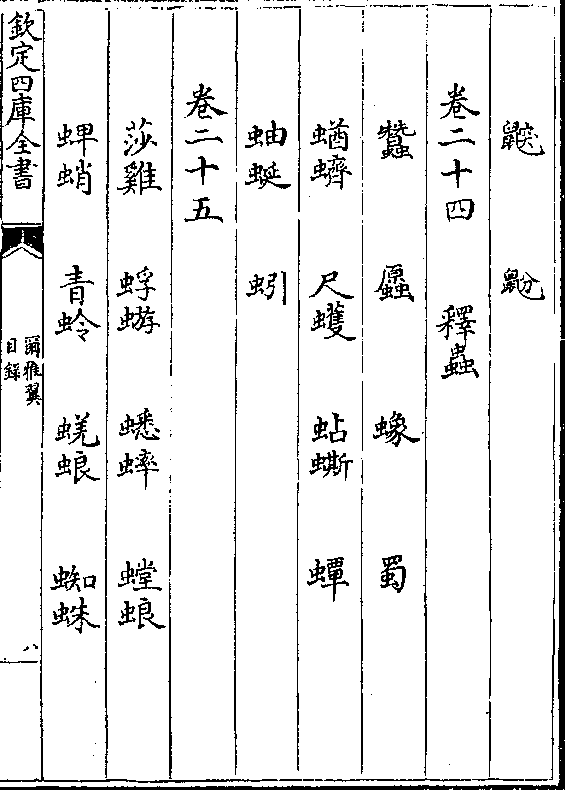 鼵 鼢
卷二十四 釋蟲
蠶 蟓 蜀
蝤蠐 尺蠖 蛅蟖 蟫
蚰蜒 蚓
卷二十五
莎雞 蜉蝣 蟋蟀 螳蜋
蜱蛸 青蛉 蜣蜋 蜘蛛
欽定四庫全書
爾雅翼
目錄
八